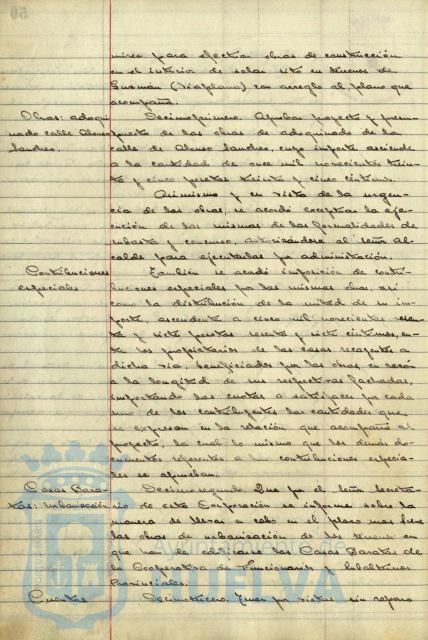 miso para efectuar obras de construcción
en el interior de solar sito en terrenos de
Guzmán (Viaplana) con arreglo al plano que
acompaña.
Obras: adoqui-
nado calle Alonso
Sanches.
Decimoprimero. Aprobar proyecto y presu-
puesto de las obras de adoquinado de la
calle de Alonso Sanches, cuyo importe asciende
a la cantidad de once mil novecientas trein-
ta y cinco pesetas treinta y cinco céntimos.
Asimismo y en vista de la urgen-
cia de las obras, se acordó exceptuar la eje-
cución de las mismas de las formalidades de
subasta y concurso, autorizándose al señor Al-
calde para ejecutarlas por administración.
Contribuciones
especiales
También se acordó imposición de contri-
buciones especiales por las mismas obras, así
como la distribución de la mitad de su im-
porte, ascendente a cinco mil novecientas sesen-
ta y siete pesetas sesenta y siete céntimos, en-
tre los propietarios de las casas recayentes a
dicha vía, beneficiados por las obras, en razón
a la longitud de sus respectivas fachadas,
importando las cuotas a satisfacer por cada
uno de los contribuyentes las cantidades que
se expresan en la relación que acompaña al
proyecto, la cual lo mismo que los demás do-
cumentos referentes a las contribuciones especia-
les se aprueban.
Casas Bara-
tas: urbanización
Decimosegundo. Que por el señor Secreta-
rio de esta Corporación se informe sobre la
manera de llevar a cabo en el plazo mas breve
las obras de urbanización de los terrenos en
que han de edificarse las Casas Baratas de
la Cooperativa de Funcionarios y Subalternos
Provinciales.
Cuentas
Decimotercero. Tener por vistas sin reparo
HUELVA